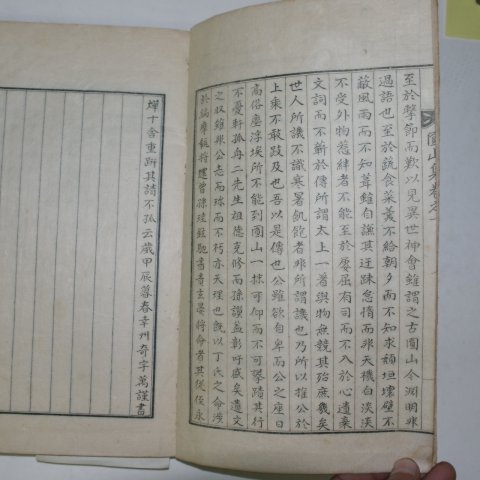 圓山集卷之一
至於擊節而歎以見異世神會雖謂之古圓山今淵明非
過語也至於蔬食菜羹不給朝夕而不知求頹垣壞壁不
蔽風雨而不知葺雖自謙其迂踈怠惰而非天機自淡泆
不受外物惹絆者不能至於屢屈有司而不入於心遺棄
文詞而不蘄於傳所謂太上一著與物無競其殆庶幾矣
世人所譏不識寒暑飢飽者非所謂譏也乃所以推公於
上乘不敢跂及也吾以是傳也公雖欲自卑而公之座日
高俗塵浮埃所不能到圓山一抹可仰而不可攀踏其行
不憂軒孤舟二先生祖德克修而孫謨益彰吁盛矣遺文
之收雖非公志而珠而不朽亦天理也旣以丁氏之命涉
於編摩執
將命者其從侄永
燁十舍重趼其請不孤云歲甲辰暮春幸州奇宇萬謹書